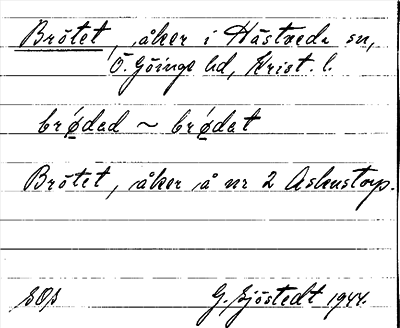 Brötet, åker i Hästveda sn,
Ö. Göinge hd, Krist. l.
brǿdad ~ brǿdat
Brötet, åker å nr 2 Askustorp.
SOs G. Sjöstedt 1944.